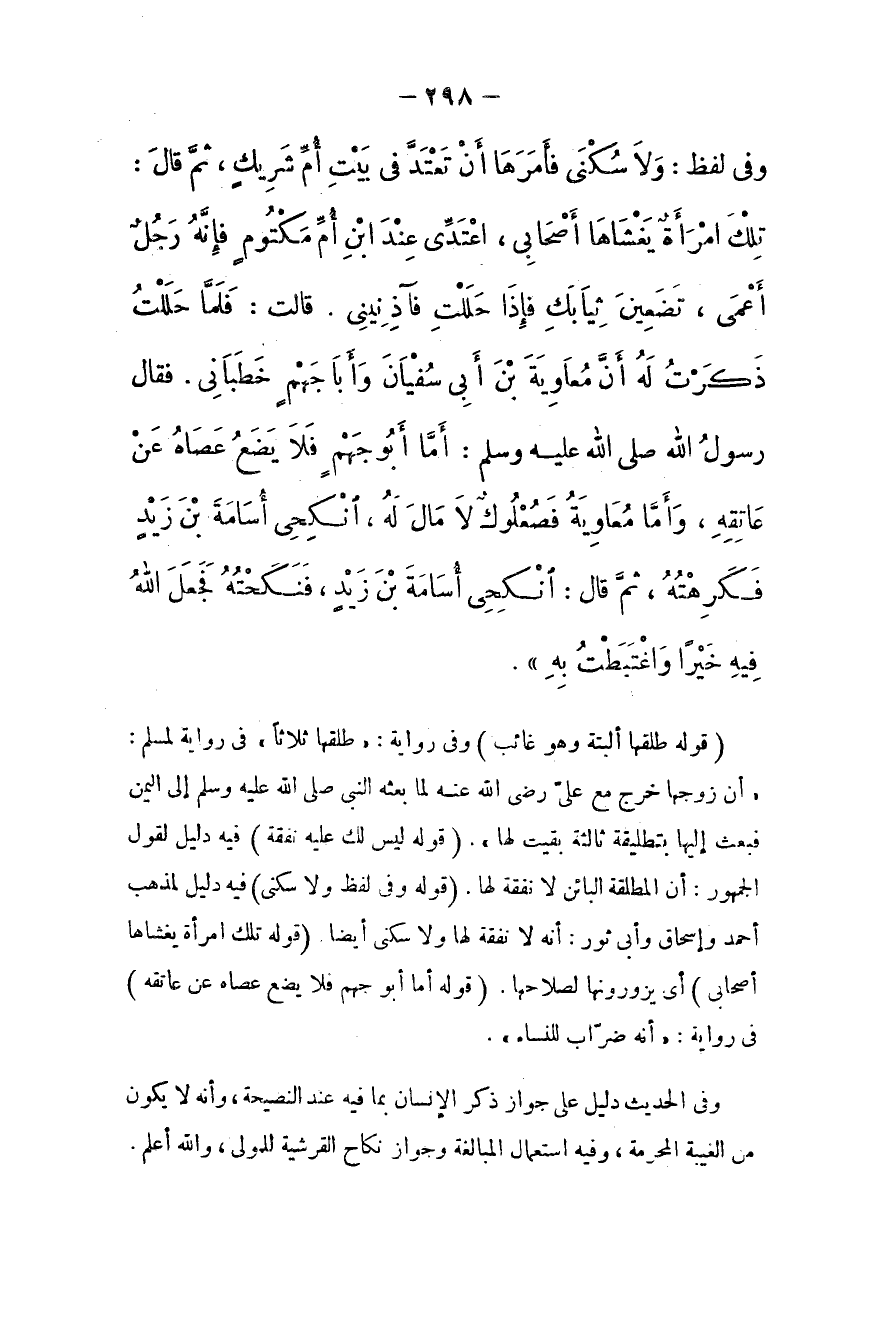 – ٢٩٨ –
وفى لفظ : وَلاَ سُكْنَى فأَمَرَهَا أَنْ تَعْتَدَّ فى بَيْتِ أُمِّ شَرِيكٍ ، ثمَّ قالَ :
تِلْكَ امْرَأَةٌ يَغْشَاهَا أَصْحَابِى ، اعْتَدِّى عِنْدَ ابْنِ أُمِّ مَكْتُومٍ فإِنَّهُ رَجُلٌ
أَعْمَى ، تَضَعِينَ ثِيَابَكِ فإِذَا حَلَلْتِ فَآذِنِينِى . قالت : فَلَمَّا حَلَلْتُ
ذَكَرْتُ لَهُ أَنَّ مُعَاوِيَةَ بْنَ أَبِى سُفْيَانَ وَأَبَا جَهْمٍ خَطَبَانِى . فقال
رسولُ الله صلى الله عليه وسلم : أَمَّا أَبُو جَهْمٍ فَلاَ يَضَعُ عَصَاهُ عَنْ
عَاتِقِهِ ، وَأَمَّا مُعَاوِيَةُ فَصُعْلُوكٌ لاَ مَالَ لَهُ ، ٱنْكِحِى أُسَامَةَ بْنَ زَيْدٍ
فَكَرِهْتُهُ ، ثمَّ قال : ٱنْكِحِى أُسَامَةَ بْنَ زَيْدٍ ، فَنَكَحْتُهُ فَجَعَلَ اللهُ
فِيهِ خَيْرًا وَاغْتَبَطْتُ بِهِ » .
( قوله طلقها ألبتة وهو غائب ) وفى رواية : « طلقها ثلاثاً » فى رواية لمسلم :
« أن زوجها خرج مع علىّ رضى الله عنه لما بعثه النبى صلى الله عليه وسلم إلى اليمن
فبعث إليها بتطليقة ثالثة بقيت لها » . ( قوله ليس لك عليه نفقة ) فيه دليل لقول
الجمهور : أن المطلقة البائن لا نفقة لها . (قوله وفى لفظ ولا سكنى) فيه دليل لمذهب
أحمد وإسحاق وأبى ثور : أنه لا نفقة لها ولا سكنى أيضا . (قوله تلك امرأة يغشاها
أصحابى ) أى يزورونها لصلاحها . ( قوله أما أبو جهم فلا يضع عصاه عن عاتقه )
فى رواية : « أنه ضرّاب للنساء » .
وفى الحديث دليل على جواز ذكر الإنسان بما فيه عند النصيحة ، وأنه لا يكون
من الغيبة المحرمة ، وفيه استعمال المبالغة وجواز نكاح القرشية للمولى ، والله أعلم .